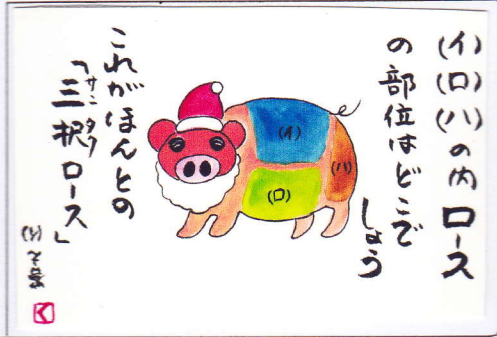 (イ)(ロ)(ハ)の内ロース
の部位はどこで
しょう
(イ)
(ロ)
(ハ)
これがほんとの
サンタク
「三択ロース」